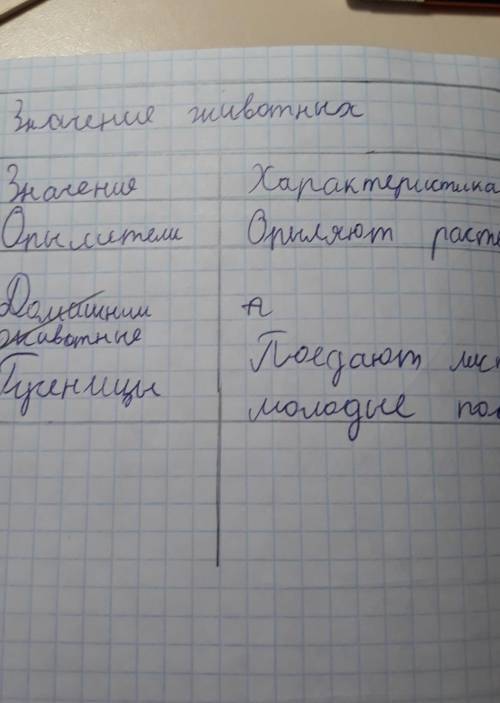 Значение животных
Значения Характеристика
Опылители Опыляют расте
Домашним А
животные
Гусеницы Поедают лис
молодые поб